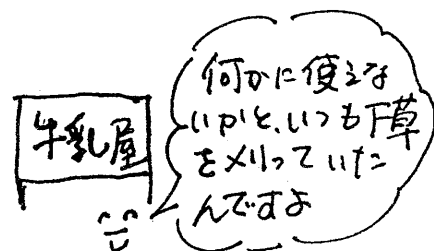 牛乳屋
何かに使えな
いかと、いつも下草
を刈っていた
んですよ